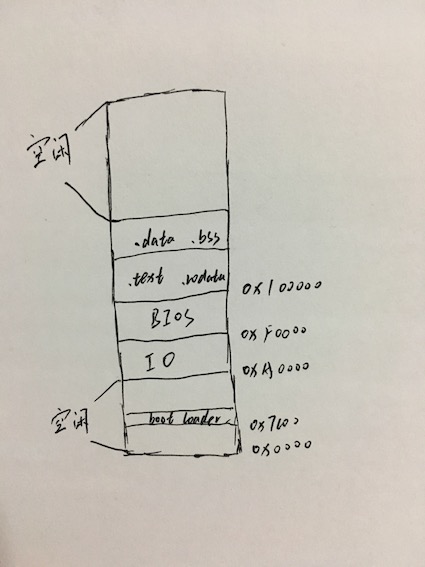 空闲
.data .bss
.text .rodata
0x100000
BIOS
0xF0000
IO
0xA0000
空闲
boot loader
0x7c00
0x0000